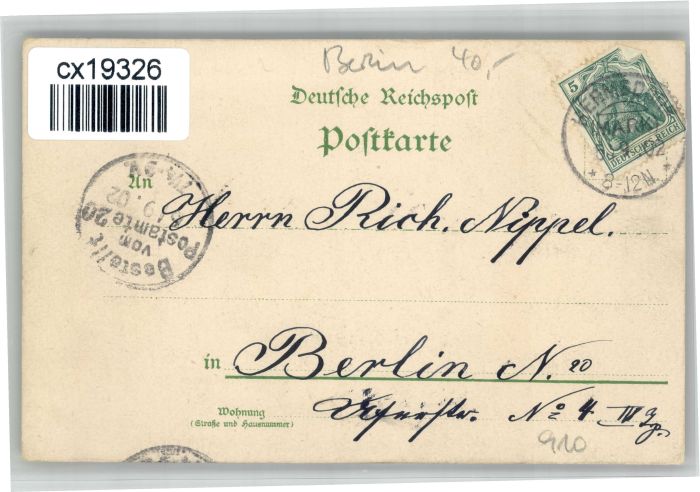 cx19326
Berlin 40,-
Deutsche Reichspost
Postkarte
5
DEUTSCHES REICH
MARK
9. 02
*8-12N.*
Bestellt
vom
Postamte 20
9. 02
An
Herrn Rich. Nippel.
in Berlin N. 20
Wohnung
(Straße und Hausnummer)
No 4 IV
910